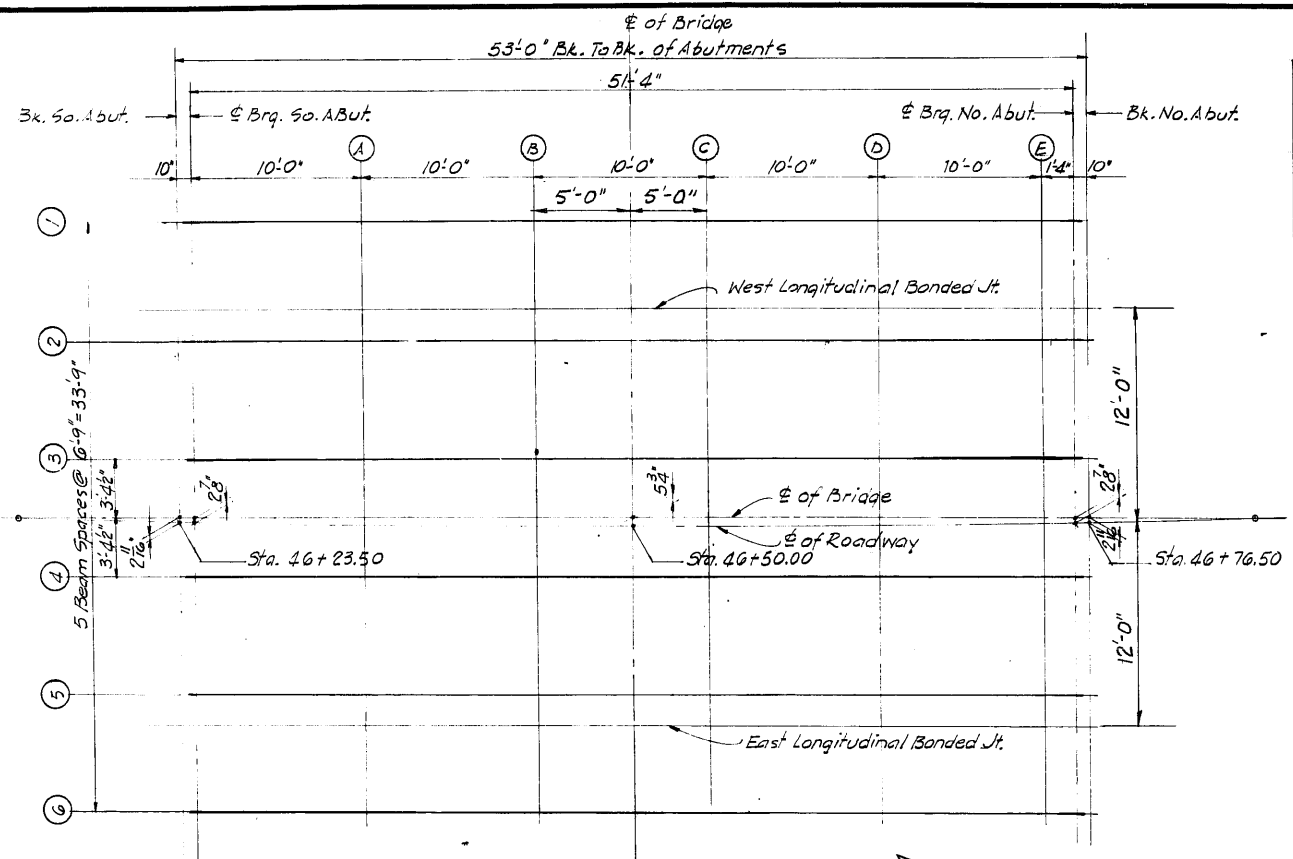 ℄ of Bridge
53'-0" Bk. To Bk. of Abutments
51'-4"
Bk. So. Abut.
℄ Brg. So. ABut.
℄ Brg. No. Abut.
Bk. No. Abut.
A
B
C
D
E
10"
10'-0"
10'-0"
10'-0"
10'-0"
10'-0"
1'-4"
10"
5'-0"
5'-0"
1
West Longitudinal Bonded Jt.
2
12'-0"
5 Beam Spaces @ 6'-9" = 33'-9"
3
3'-4½"
2⅞"
5¾"
℄ of Bridge
2⅞"
℄ of Roadway
3'-4½"
2 11/16"
Sta. 46+23.50
Sta. 46+50.00
2 11/16"
Sta. 46+76.50
4
12'-0"
5
East Longitudinal Bonded Jt.
6